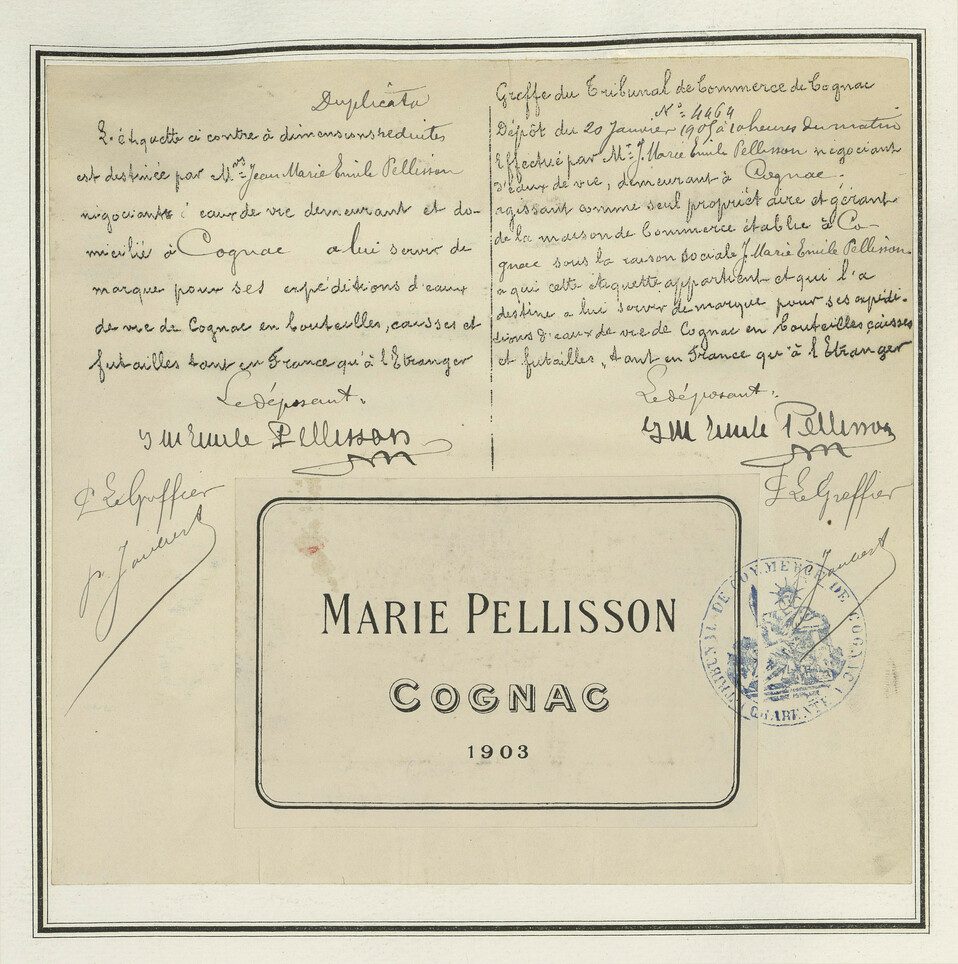 Duplicata
L'étiquette ci contre à dimensions réduites
est destinée par Mr Jean Marie Emile Pellisson
négociant eaux de vie demeurant et do-
micilié à Cognac a lui servir de
marque pour ses expéditions d'eaux
de vie de Cognac en bouteilles, caisses et
futailles tant en France qu'à l'Etranger
Le déposant:
J M Emile Pellisson
Le Greffier
p. Joubert
Greffe du Tribunal de Commerce de Cognac
No 4464
Dépôt du 20 Janvier à 10 heures du matin
Effectué par Mr J. Marie Emile Pellisson négociant
d'eaux de vie, demeurant à Cognac.
agissant comme seul propriétaire et gérant
de la maison de Commerce établie à Co-
gnac sous la raison sociale J. Marie Emile Pellisson
a qui cette étiquette appartient et qui l'a
destine a lui servir de marque pour ses expédi-
tions d'eaux de vie de Cognac en bouteilles caisses
et futailles, tant en France qu'à l'Etranger
Le déposant:
J M Emile Pellisson
Le Greffier
Joubert
MARIE PELLISSON
COGNAC
1903
TRIBUNAL DE COMMERCE DE COGNAC
CHARENTE